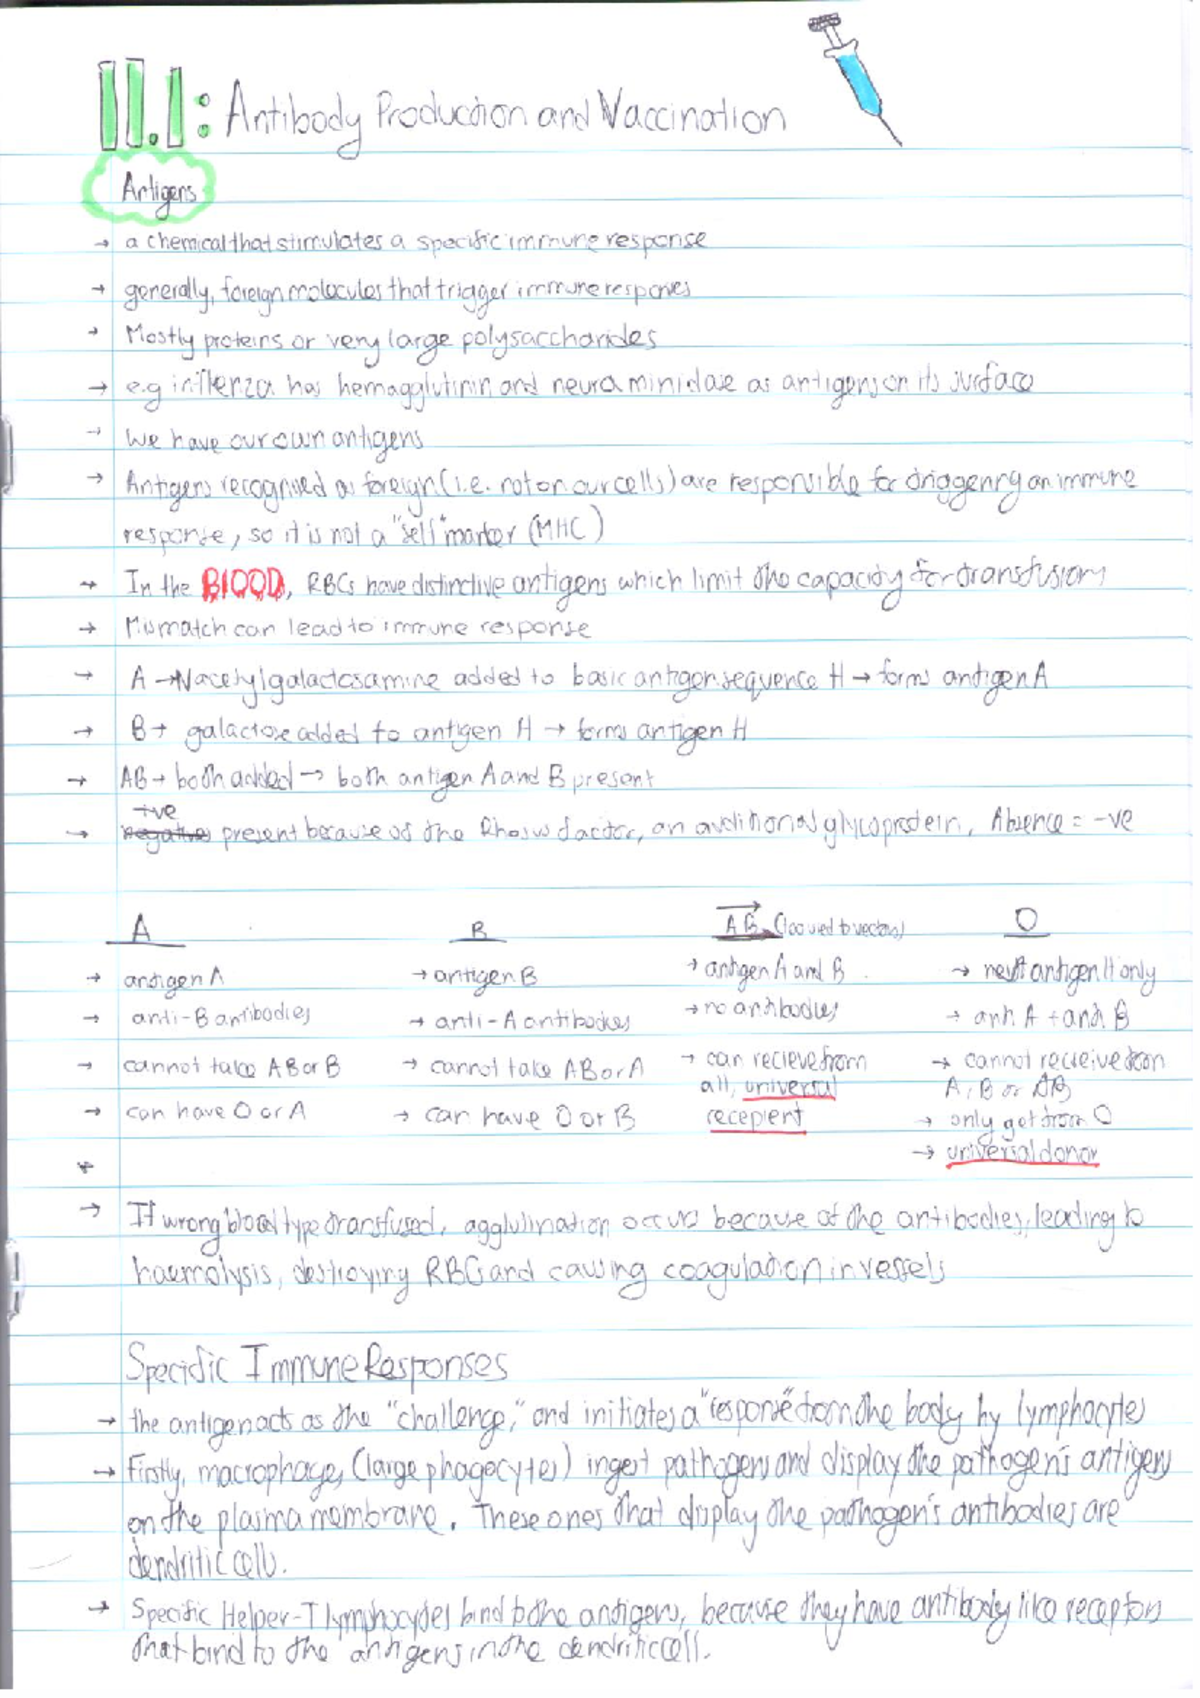 11.1: Antibody Production and Vaccination
Antigens
→ a chemical that stimulates a specific immune response
→ generally, foreign molecules that trigger immune responses
→ Mostly proteins or very large polysaccharides
→ e.g influenza has hemagglutinin and neuraminidase as antigens on its surface
→ We have our own antigens
→ Antigens recognised as foreign (i.e. not on our cells) are responsible for triggering an immune
response, so it is not a "self" marker (MHC)
→ In the BLOOD, RBCs have distinctive antigens which limit the capacity for transfusion
→ Mismatch can lead to immune response
→ A → N acetylgalactosamine added to basic antigen sequence H → forms antigen A
→ B → galactose added to antigen H → forms antigen H
→ AB → both added → both antigen A and B present
+ve
→ negative present because of the Rhesus factor, an additional glycoprotein. Absence = -ve
A B AB (too used to vectors) O
→ antigen A → antigen B → antigen A and B → antigen H only
→ anti-B antibodies → anti-A antibodies → no antibodies → anti A + anti B
→ cannot take AB or B → cannot take AB or A → can recieve from → cannot receive from
all, universal A, B or AB
→ can have O or A → can have O or B recepient → only get from O
→ universal donor
→
→ If wrong blood type transfused, agglutination occurs because of the antibodies, leading to
haemolysis, destroying RBC and causing coagulation in vessels
Specific Immune Responses
→ the antigen acts as the "challenge," and initiates a "response" from the body by lymphocytes
→ Firstly, macrophages (large phagocytes) ingest pathogens and display the pathogen's antigens
on the plasma membrane. These ones that display the pathogen's antibodies are
dendritic cells.
→ Specific Helper-T lymphocytes bind to the antigens, because they have antibody like receptors
that bind to the antigens in the dendritic cell.